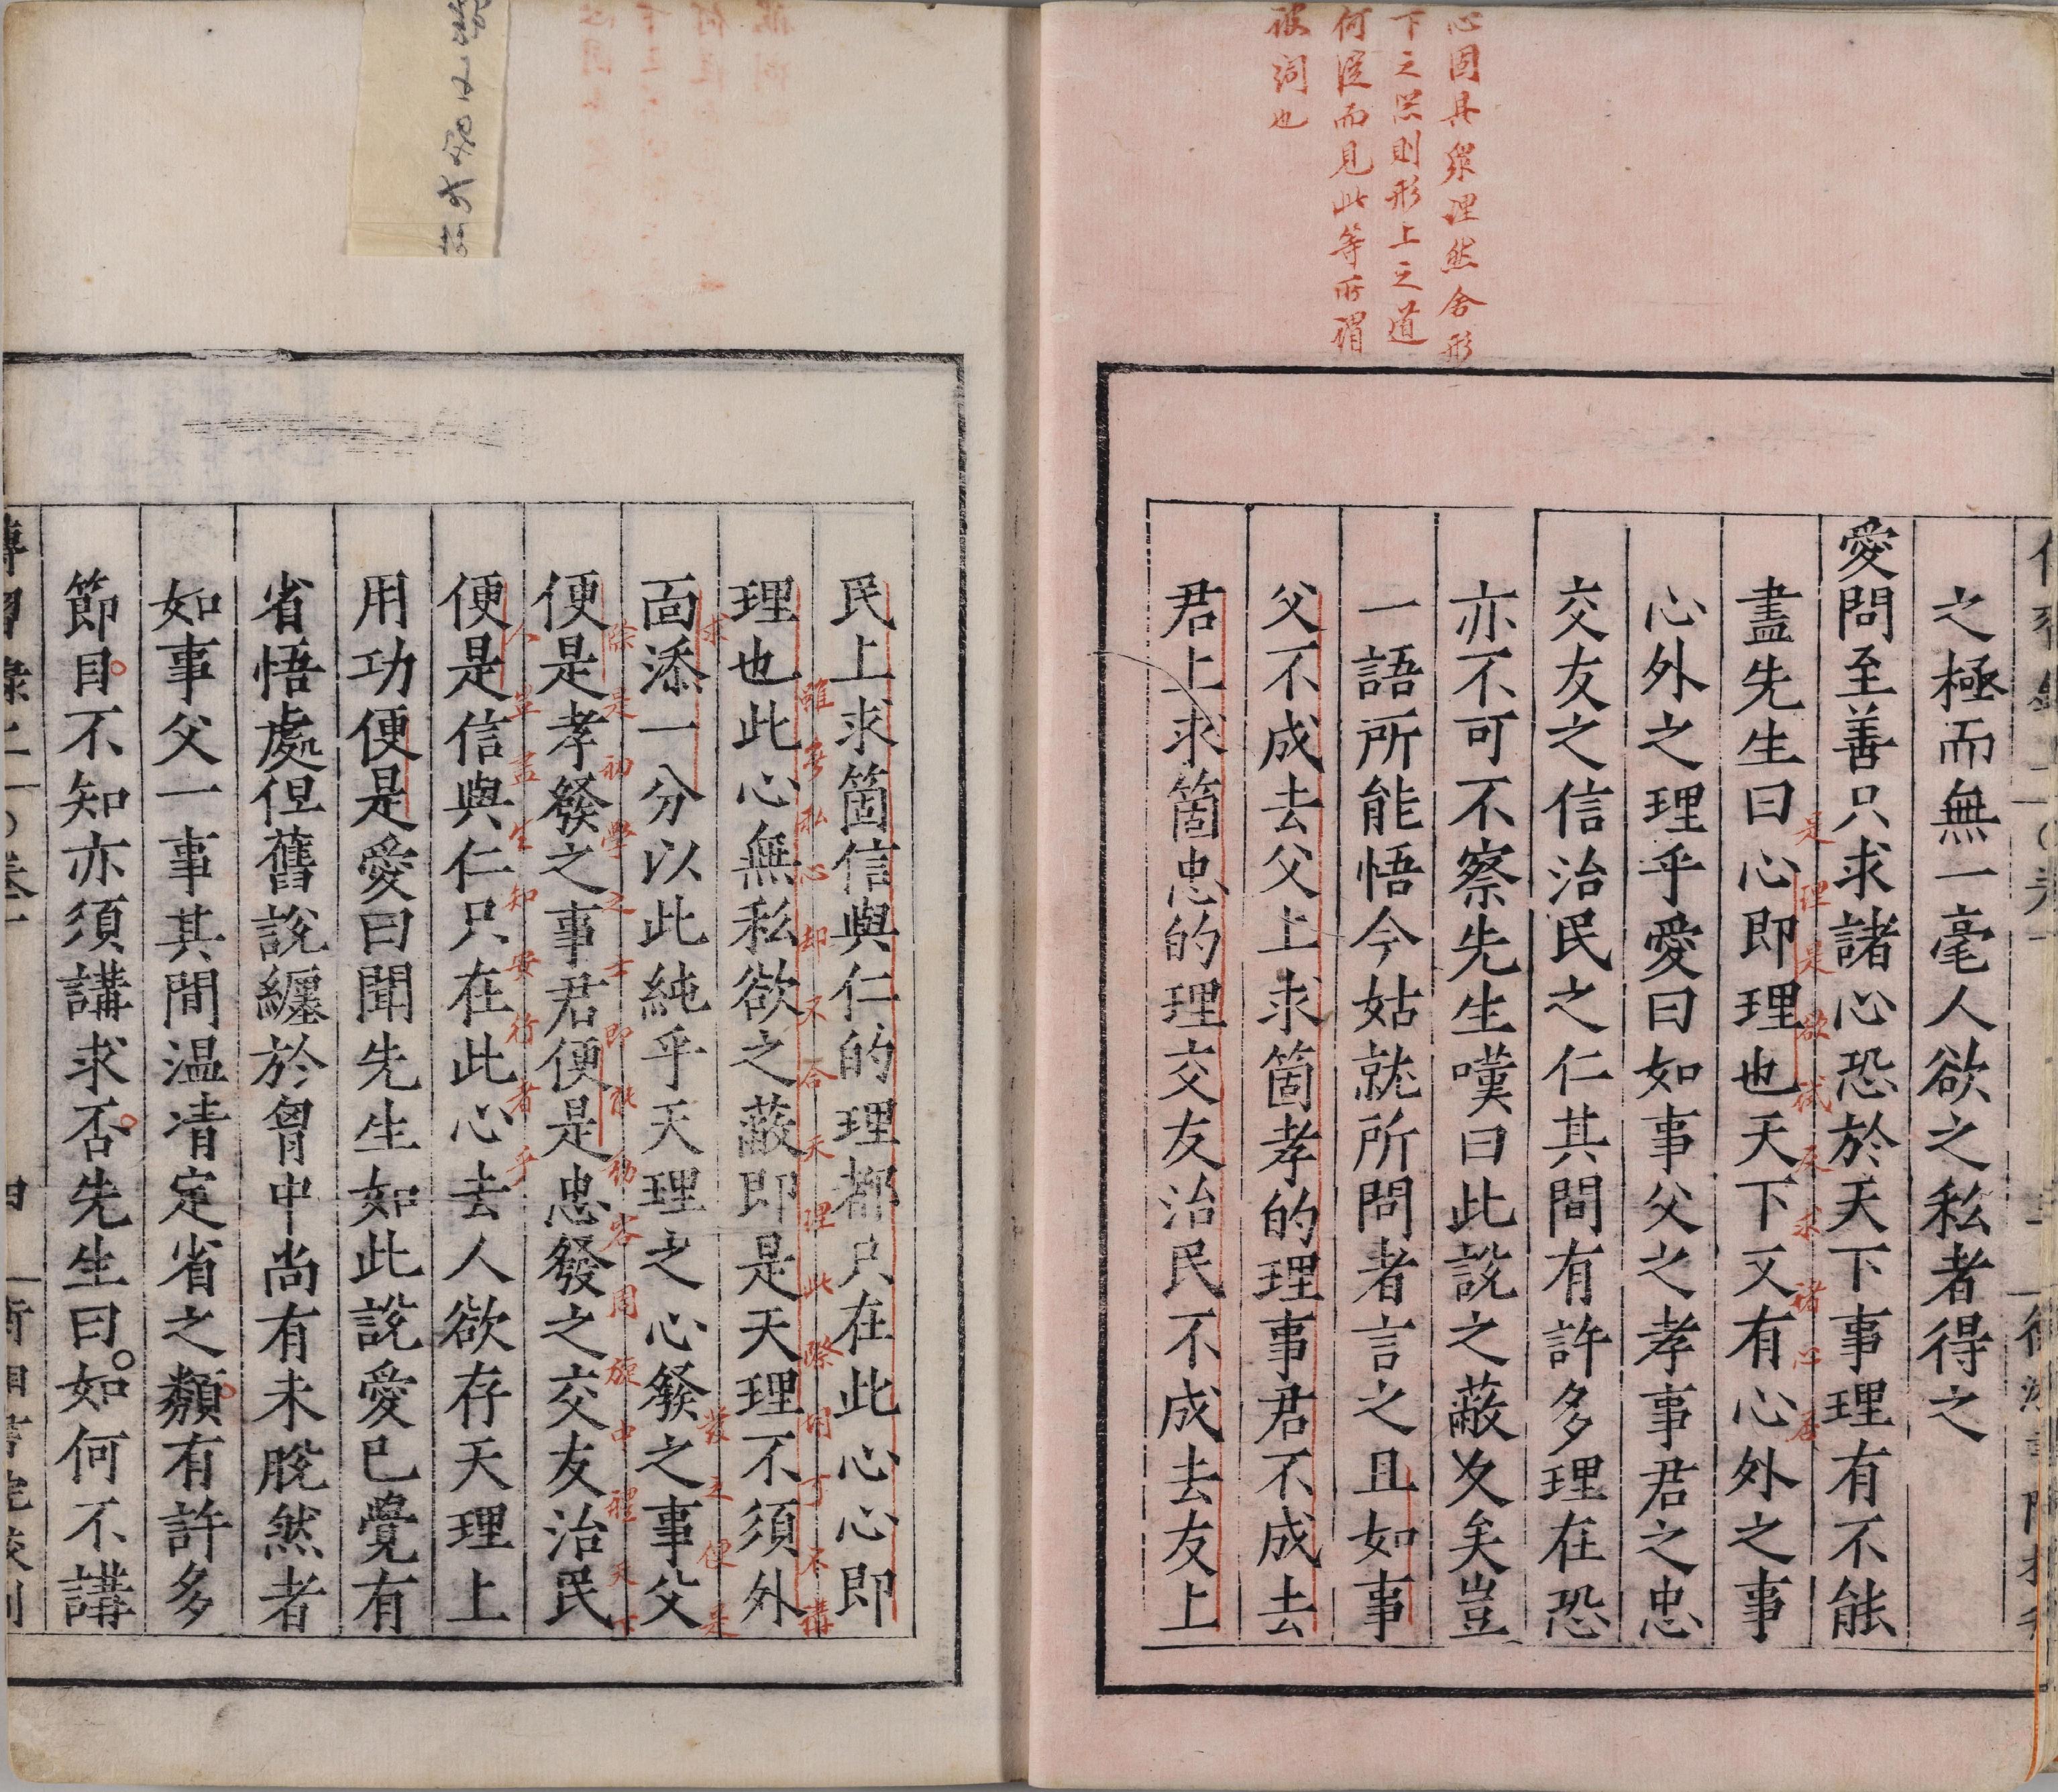 心固具眾理然舍形
下之器則形上之道
何從而見此等所謂
詖詞也
之極而無一毫人欲之私者得之
愛問至善只求諸心恐於天下事理有不能
盡先生曰心即理也天下又有心外之事
心外之理乎愛曰如事父之孝事君之忠
交友之信治民之仁其間有許多理在恐
亦不可不察先生嘆曰此說之蔽久矣豈
一語所能悟今姑就所問者言之且如事
父不成去父上求箇孝的理事君不成去
君上求箇忠的理交友治民不成去友上
是理是欲試反求諸心看
民上求箇信與仁的理都只在此心心即
理也此心無私欲之蔽即是天理不須外
面添一分以此純乎天理之心發之事父
便是孝發之事君便是忠發之交友治民
便是信與仁只在此心去人欲存天理上
用功便是愛曰聞先生如此說愛已覺有
省悟處但舊說纏於胷中尚有未脫然者
如事父一事其間温凊定省之類有許多
節目不知亦須講求否先生曰如何不講
雖無私心却不合天理此際何可不講
求
發之便是
際是初學之士即能動容周旋中禮天下
人豈盡生知安行者乎